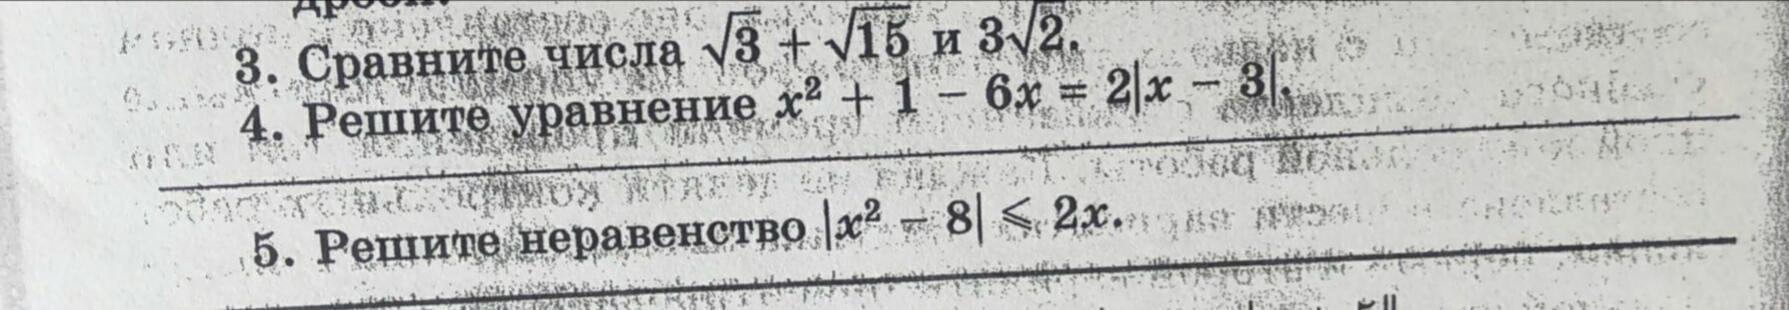 3. Сравните числа √3 + √15 и 3√2.
4. Решите уравнение x² + 1 − 6x = 2|x − 3|.
5. Решите неравенство |x² − 8| ⩽ 2x.